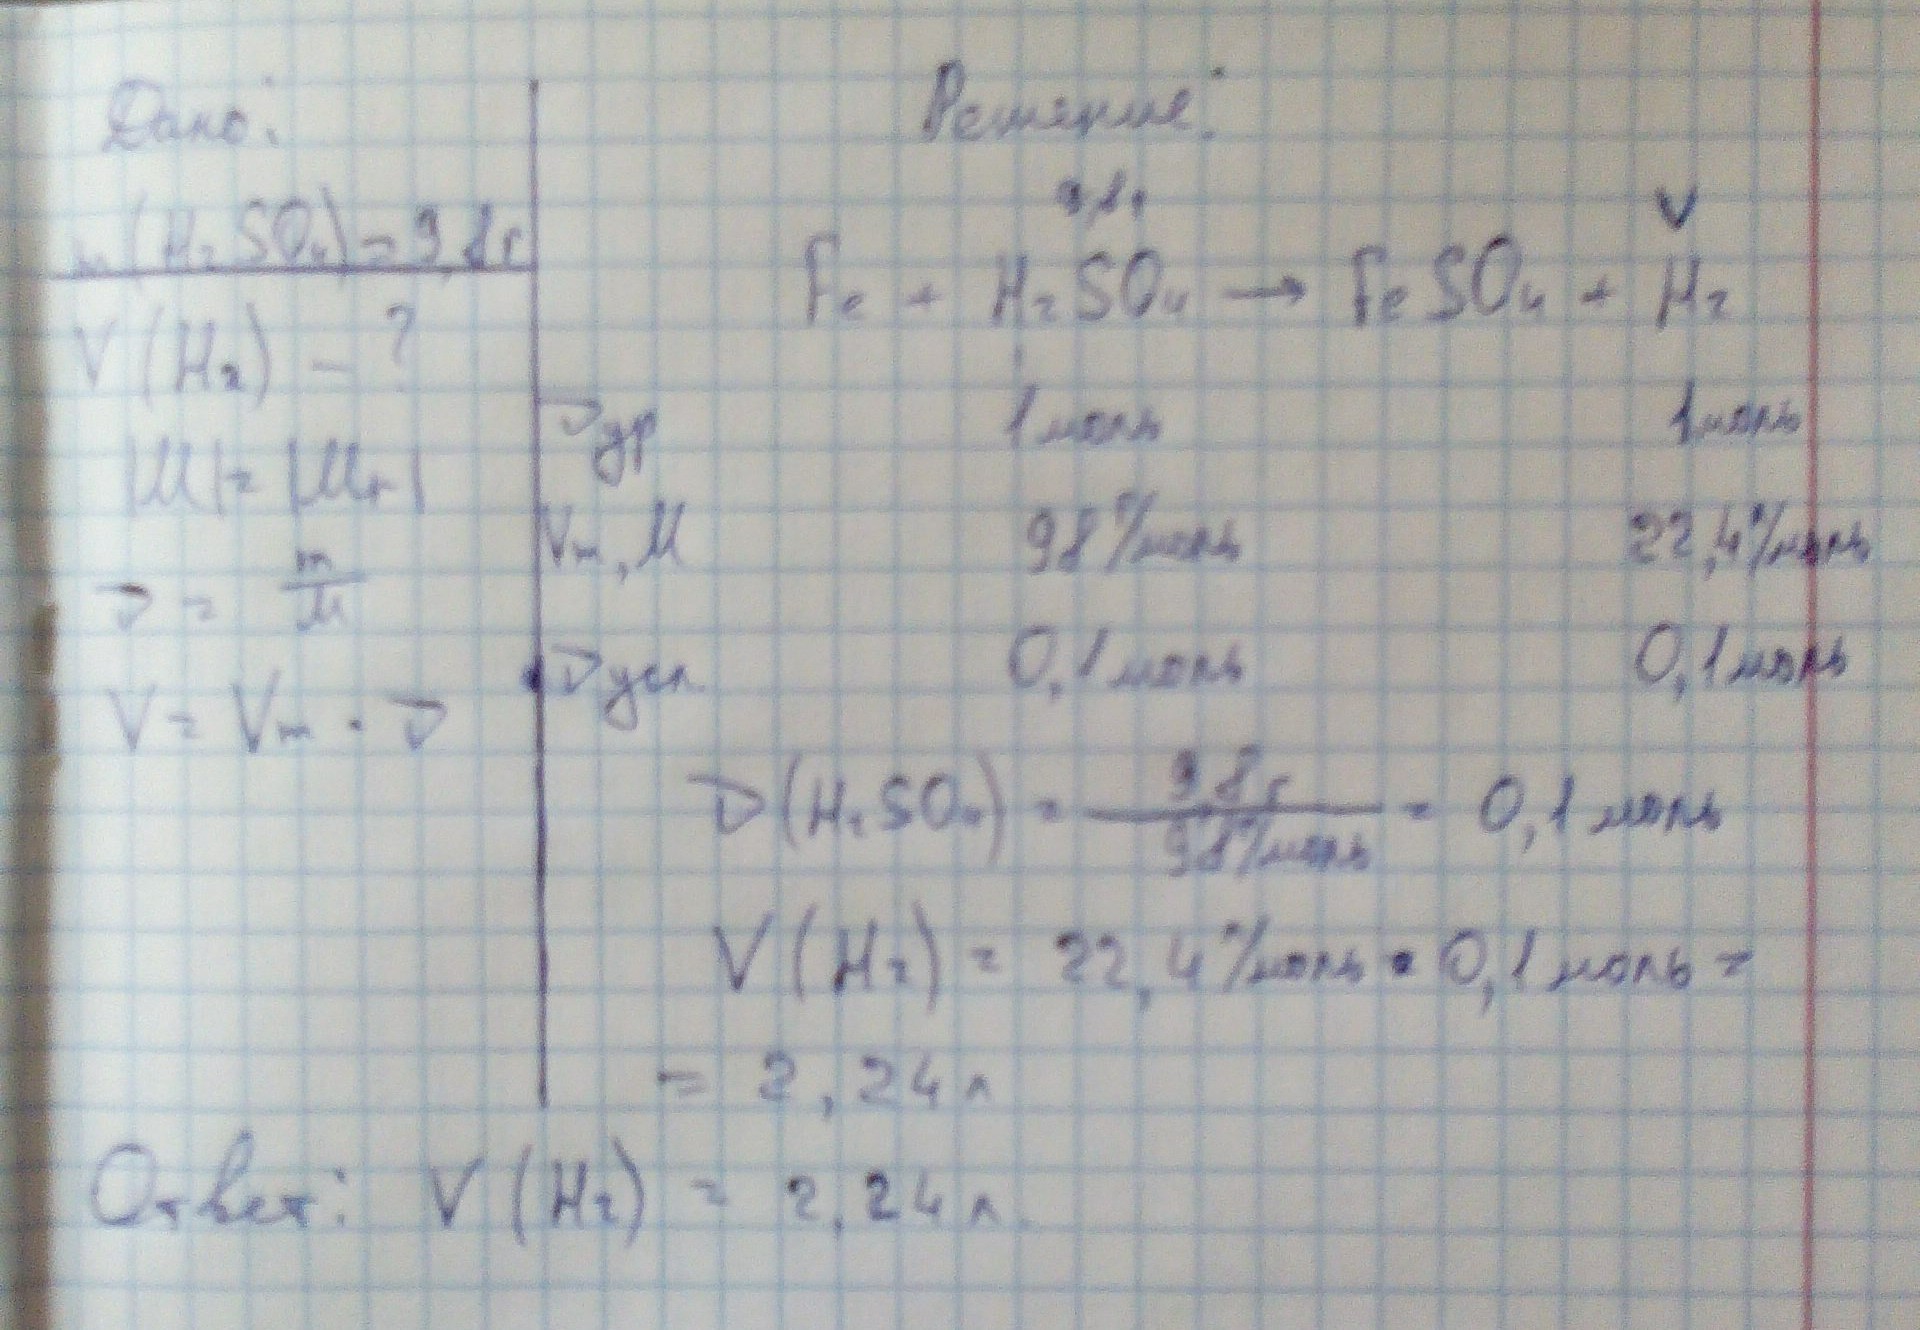 Дано:
m(H₂SO₄) = 9,8г
V(H₂) - ?
|M| = |Mr|
ν = m/M
V = Vm · ν
Решение:
9,8г V
Fe + H₂SO₄ → FeSO₄ + H₂
νур 1моль 1моль
Vm, M 98г/моль 22,4л/моль
νусл 0,1моль 0,1моль
ν(H₂SO₄) = 9,8г / 98г/моль = 0,1моль
V(H₂) = 22,4л/моль · 0,1моль =
= 2,24л
Ответ: V(H₂) = 2,24л.